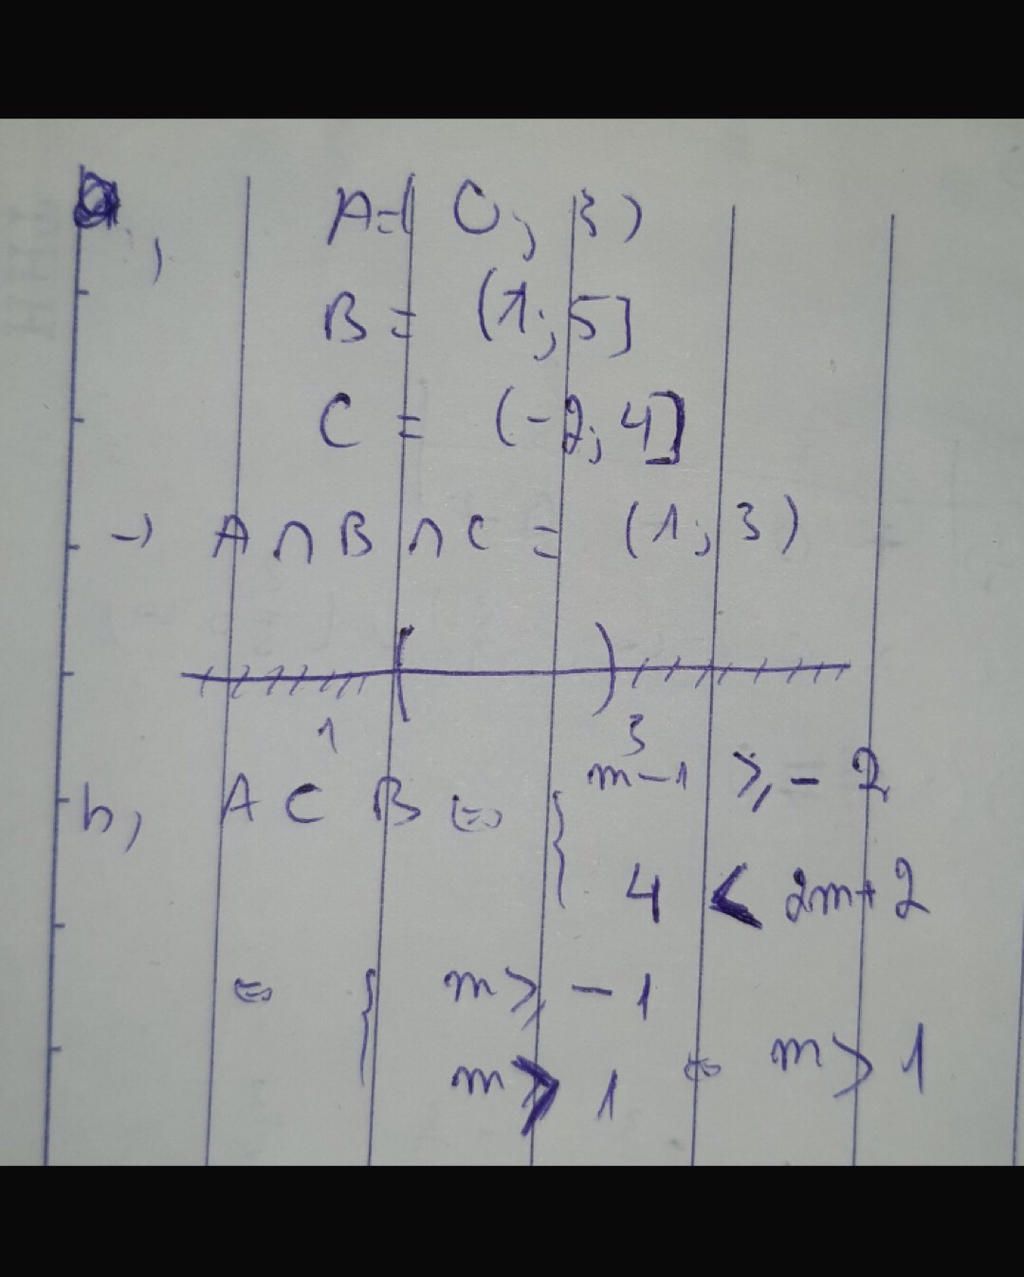 a,
A=( 0; 3)
B = (1; 5]
C = (-2; 4]
→ A ∩ B ∩ C = (1; 3)
( )
1 3
b, A ⊂ B ⇔ { m-1 ≥ -2
4 < 2m+2
⇔ { m ≥ -1
m > 1 ⇔ m > 1